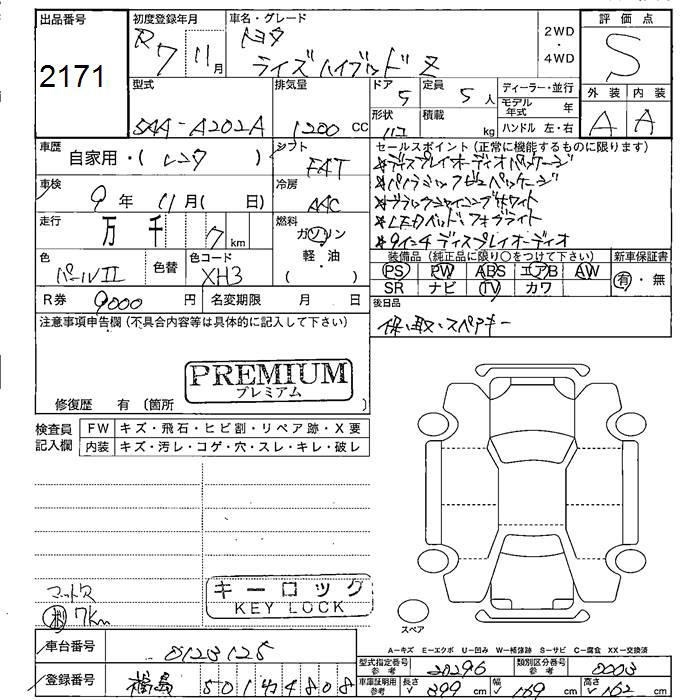 出品番号 初度登録年月 車名・グレード 評価点
2171 R7 11月 トヨタ 2WD・4WD S
ライズハイブリッド Z
外装 内装
A A
型式 排気量 ドア 定員 ディーラー・並行
5 5人 モデル年式 年
5AA-A202A 1200 CC 形状 積載 kg ハンドル 左・右
車歴 自家用・(レンタ) シフト FAT セールスポイント(正常に機能するものに限ります)
★ディスプレイオーディオパッケージ
車検 9年 11月( 日) 冷房 AAC ★パノラミックビューパッケージ
★ブラックシャイニングホワイト
走行 万 千 7km 燃料 ガソリン・軽・油( ) ★LEDヘッドフォグライト
★9インチディスプレイオーディオ
色 パールII 色替 色コード XH3 装備品(純正品に限り○をつけて下さい) 新車保証書
PS PW ABS エアB AW 有・無
SR ナビ TV カワ
R券 9000円 名変期限 月 日 後日品
保・取・スペアキー
注意事項申告欄(不具合内容等は具体的に記入して下さい)
PREMIUM
プレミアム
修復歴 有(箇所 )
検査員記入欄 FW キズ・飛石・ヒビ割・リペア跡・X要
内装 キズ・汚レ・コゲ・穴・スレ・キレ・破レ
マット欠
7km
キーロック
KEY LOCK
スペア
A-キズ E-エクボ U-凹み W-補修跡 S-サビ C-腐食 XX-交換済
車台番号 0123125 型式指定番号 参考 20296 類別区分番号 参考 0003
登録番号 福島 501 ナ 4808 車庫証明用 参考 長さ 399cm 幅 169cm 高さ 162cm